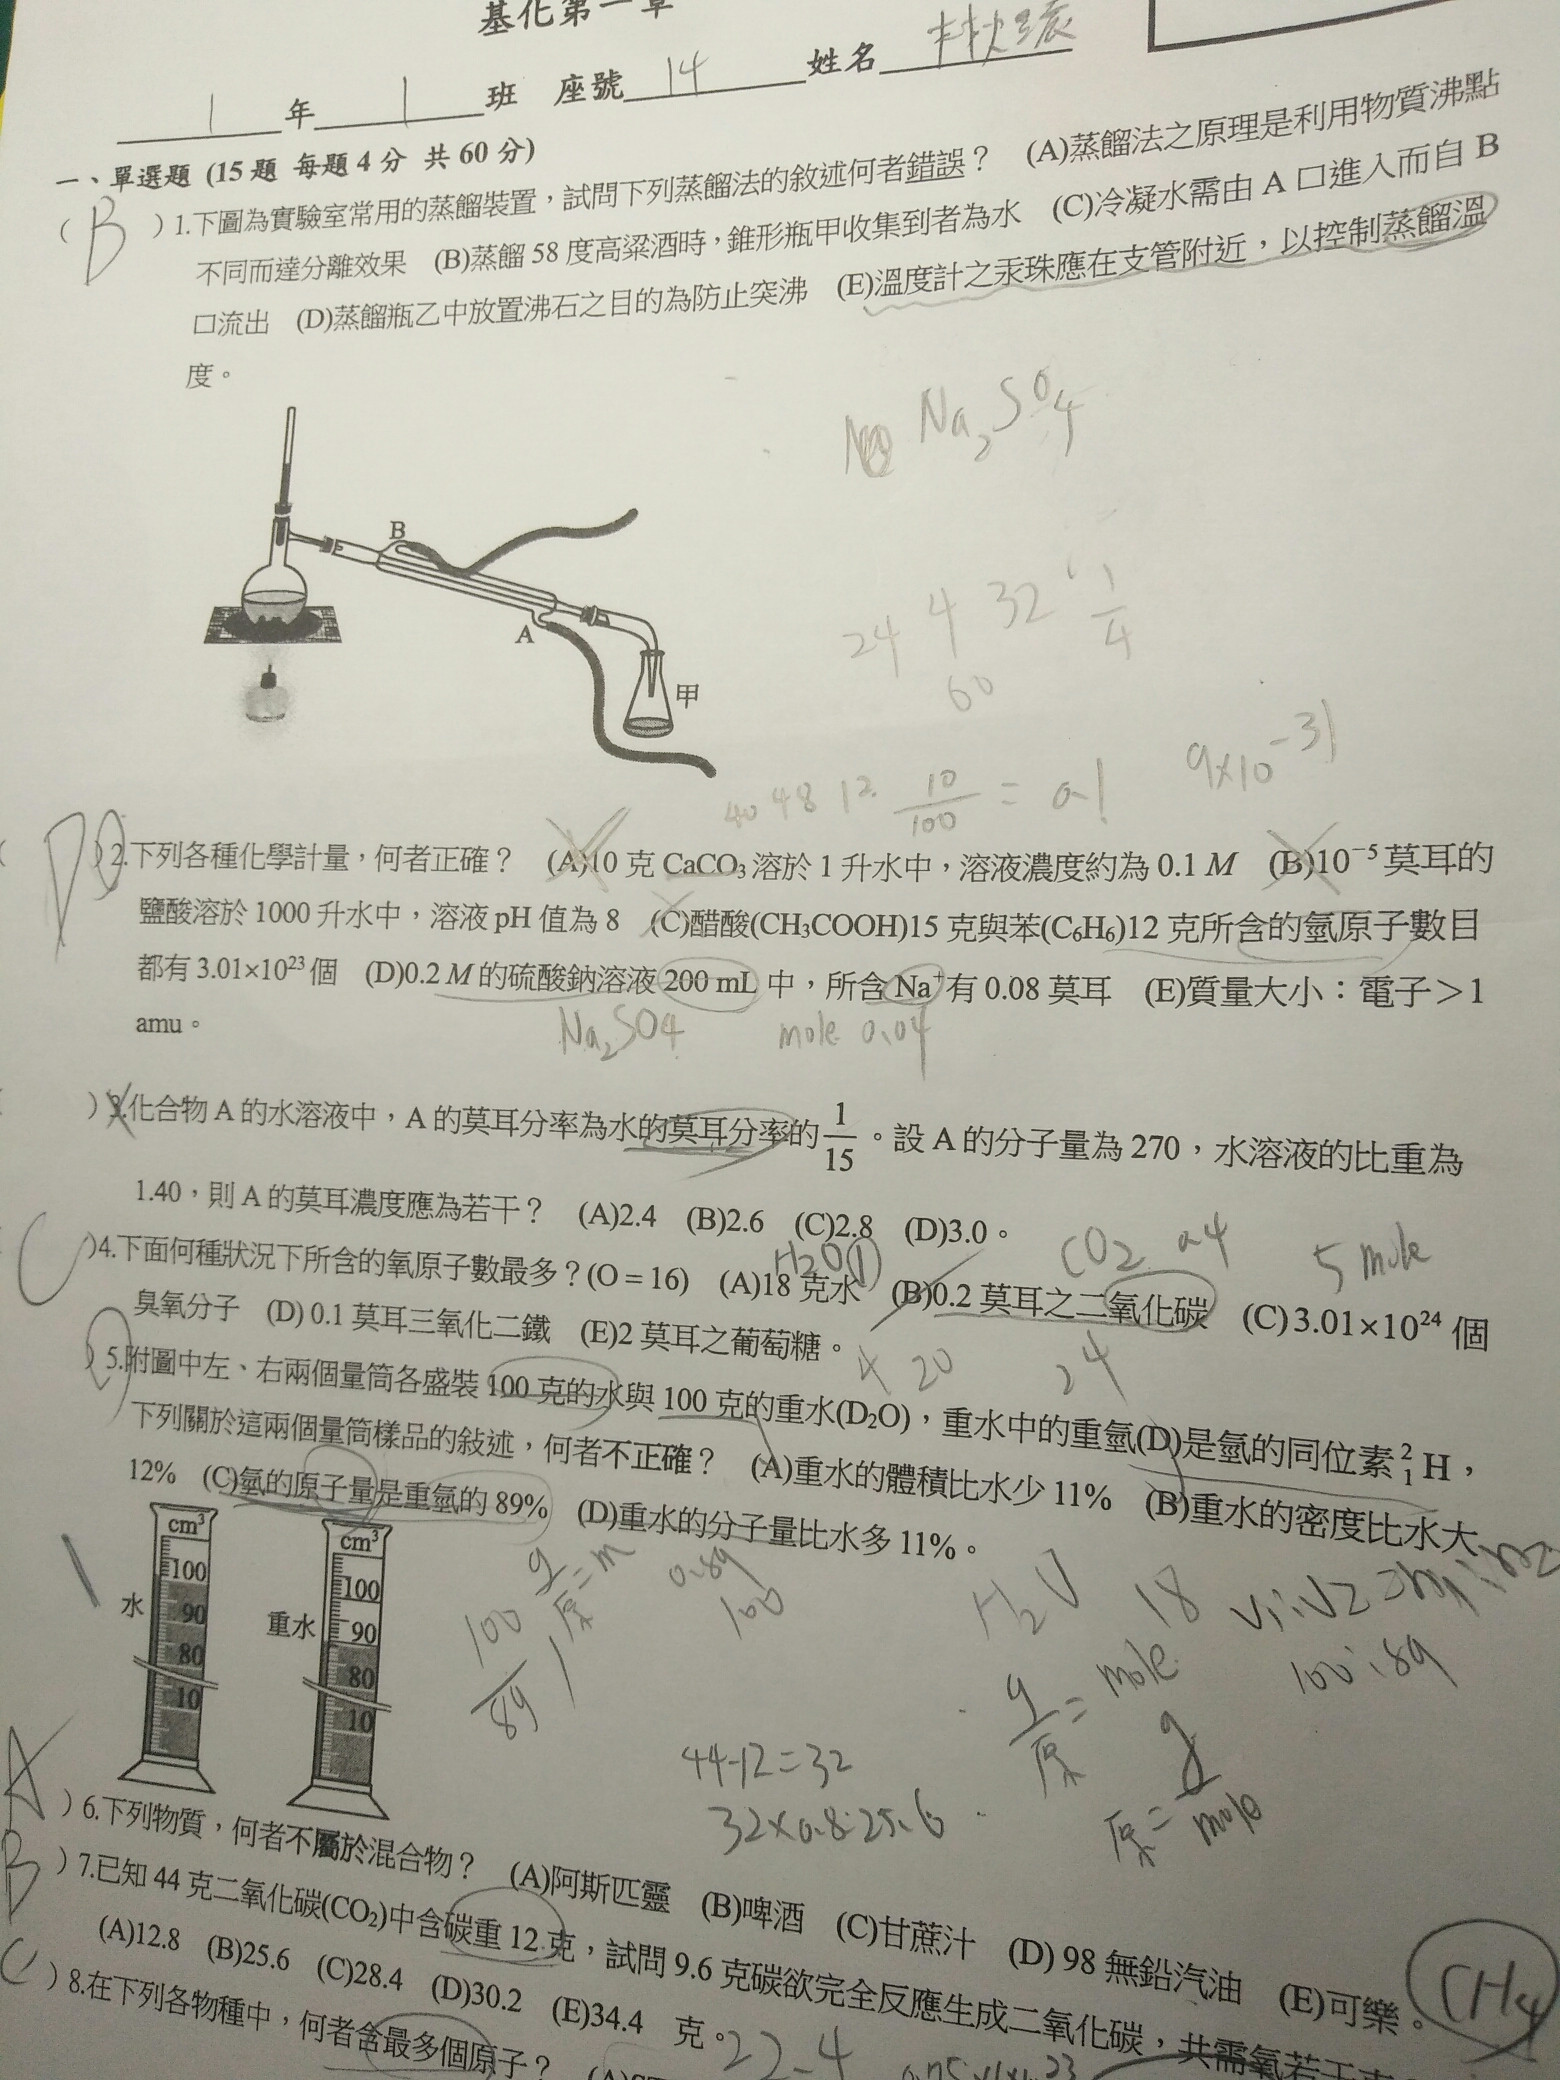 基化第一章
1 年 1 班 座號 14 姓名
一、單選題 (15題 每題4分 共60分)
( B )1.下圖為實驗室常用的蒸餾裝置，試問下列蒸餾法的敘述何者錯誤？ (A)蒸餾法之原理是利用物質沸點
不同而達分離效果 (B)蒸餾58度高粱酒時，錐形瓶甲收集到者為水 (C)冷凝水需由A口進入而自B
口流出 (D)蒸餾瓶乙中放置沸石之目的為防止突沸 (E)溫度計之汞珠應在支管附近，以控制蒸餾溫
度。
Na₂SO₄
B
24 4 32 1/4
A
60
甲
9×10⁻³¹
40 48 12 10/100 = 0.1
D )2.下列各種化學計量，何者正確？ (A)10克CaCO₃溶於1升水中，溶液濃度約為0.1 M (B)10⁻⁵莫耳的
鹽酸溶於1000升水中，溶液pH值為8 (C)醋酸(CH₃COOH)15克與苯(C₆H₆)12克所含的氫原子數目
都有3.01×10²³個 (D)0.2 M的硫酸鈉溶液200 mL中，所含Na⁺有0.08莫耳 (E)質量大小：電子＞1
amu。
Na₂SO4 mole 0.04
)3.化合物A的水溶液中，A的莫耳分率為水的莫耳分率的1/15。設A的分子量為270，水溶液的比重為
1.40，則A的莫耳濃度應為若干？ (A)2.4 (B)2.6 (C)2.8 (D)3.0。
H₂O① CO₂ 0.4 5 mole
C )4.下面何種狀況下所含的氧原子數最多？(O = 16) (A)18克水 (B)0.2莫耳之二氧化碳 (C)3.01×10²⁴個
臭氧分子 (D) 0.1莫耳三氧化二鐵 (E)2莫耳之葡萄糖。
20 24
)5.附圖中左、右兩個量筒各盛裝100克的水與100克的重水(D₂O)，重水中的重氫(D)是氫的同位素²₁H，
下列關於這兩個量筒樣品的敍述，何者不正確？ (A)重水的體積比水少11% (B)重水的密度比水大
12% (C)氫的原子量是重氫的89% (D)重水的分子量比水多11%。
cm³
100
90
80
10
水
cm³
100
90
80
10
重水
g/原=m 0.89
100
100/89
18 V₁:V2=m1:m2
100:89
g/原=mole
原=g/mole
44-12=32
32×0.8=25.6
A )6.下列物質，何者不屬於混合物？ (A)阿斯匹靈 (B)啤酒 (C)甘蔗汁 (D) 98無鉛汽油 (E)可樂。
B )7.已知44克二氧化碳(CO₂)中含碳重12克，試問9.6克碳欲完全反應生成二氧化碳，共需氧若干克
(A)12.8 (B)25.6 (C)28.4 (D)30.2 (E)34.4 克。
CH₄
C )8.在下列各物種中，何者含最多個原子？
22.4